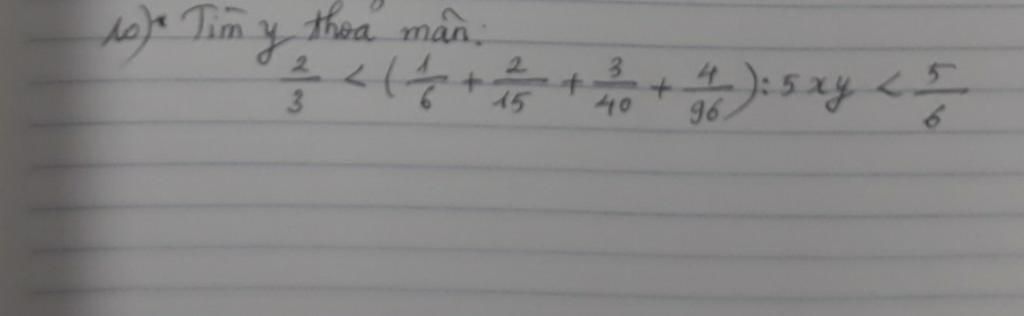 10)* Tìm y thoả mãn:
2/3 < (1/6 + 2/15 + 3/40 + 4/96) : 5 x y < 5/6